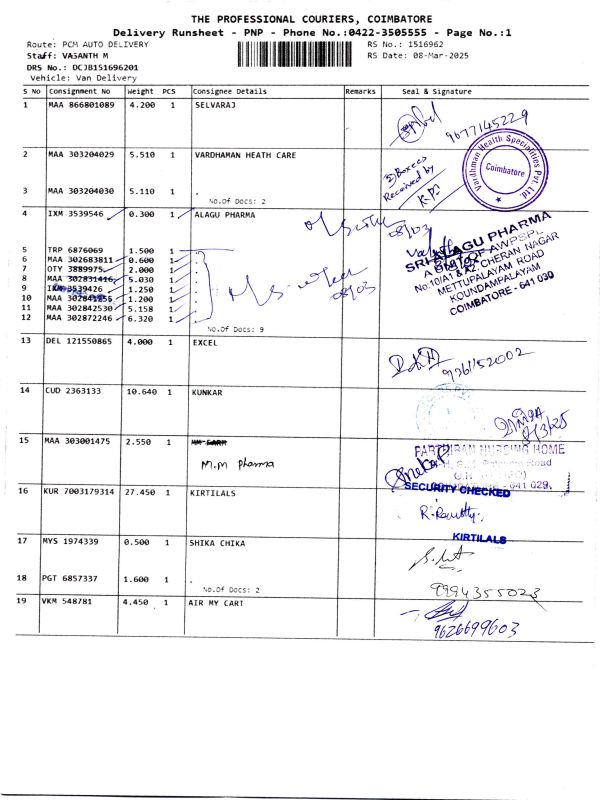 THE PROFESSIONAL COURIERS, COIMBATORE
Delivery Runsheet - PNP - Phone No.:0422-3505555 - Page No.:1
Route: PCM AUTO DELIVERY RS No.: 1516962
Staff: VASANTH M RS Date: 08-Mar-2025
DRS No.: DCJB151696201
Vehicle: Van Delivery
S No Consignment No Weight PCS Consignee Details Remarks Seal & Signature
1 MAA 866801089 4.200 1 SELVARAJ
9677145229
2 MAA 303204029 5.510 1 VARDHAMAN HEATH CARE
Vardhman Health Specialities Pvt. Ltd
Coimbatore
Boxes
Received by
3 MAA 303204030 5.110 1 .
No.Of Docs: 2
4 IXM 3539546 0.300 1 ALAGU PHARMA
08/03
SRI ALAGU PHARMA
No:10/A1 & A2 CHERAN NAGAR
METTUPALAYAM ROAD
KOUNDAMPALAYAM
COIMBATORE - 641 030
5 TRP 6876069 1.500 1 .
6 MAA 302683811 0.600 1 .
7 OTY 3889975 2.000 1 .
8 MAA 302831416 5.030 1 .
9 IXM 3539426 1.250 1 .
10 MAA 302841256 1.200 1 .
11 MAA 302842530 5.158 1 .
12 MAA 302872246 6.320 1 .
08/03
No.Of Docs: 9
13 DEL 121550865 4.000 1 EXCEL
14 CUD 2363133 10.640 1 KUNKAR
8/3/25
15 MAA 303001475 2.550 1
M.M Pharma
PARTHIBAN NURSING HOME
Road
- 641 029.
16 KUR 7003179314 27.450 1 KIRTILALS
SECURITY CHECKED
KIRTILALS
17 MYS 1974339 0.500 1 SHIKA CHIKA
18 PGT 6857337 1.600 1 .
No.Of Docs: 2
9994355023
19 VKM 548781 4.450 1 AIR MY CART
9626699603